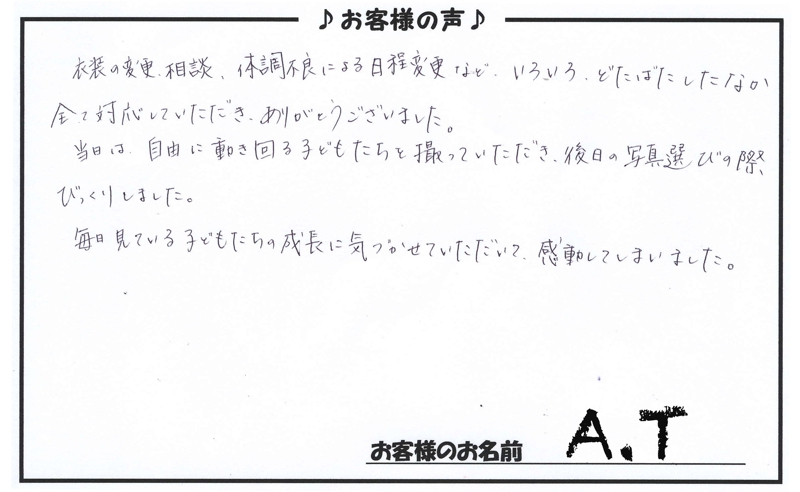 ♪お客様の声♪
衣装の変更、相談、体調不良による日程変更など、いろいろ、どたばたしたなか
全て対応していただき、ありがとうございました。
当日は、自由に動き回る子どもたちを撮っていただき、後日の写真選びの際
びっくりしました。
毎日見ている子どもたちの成長に気づかせていただいて、感動してしまいました。
お客様のお名前 A.T